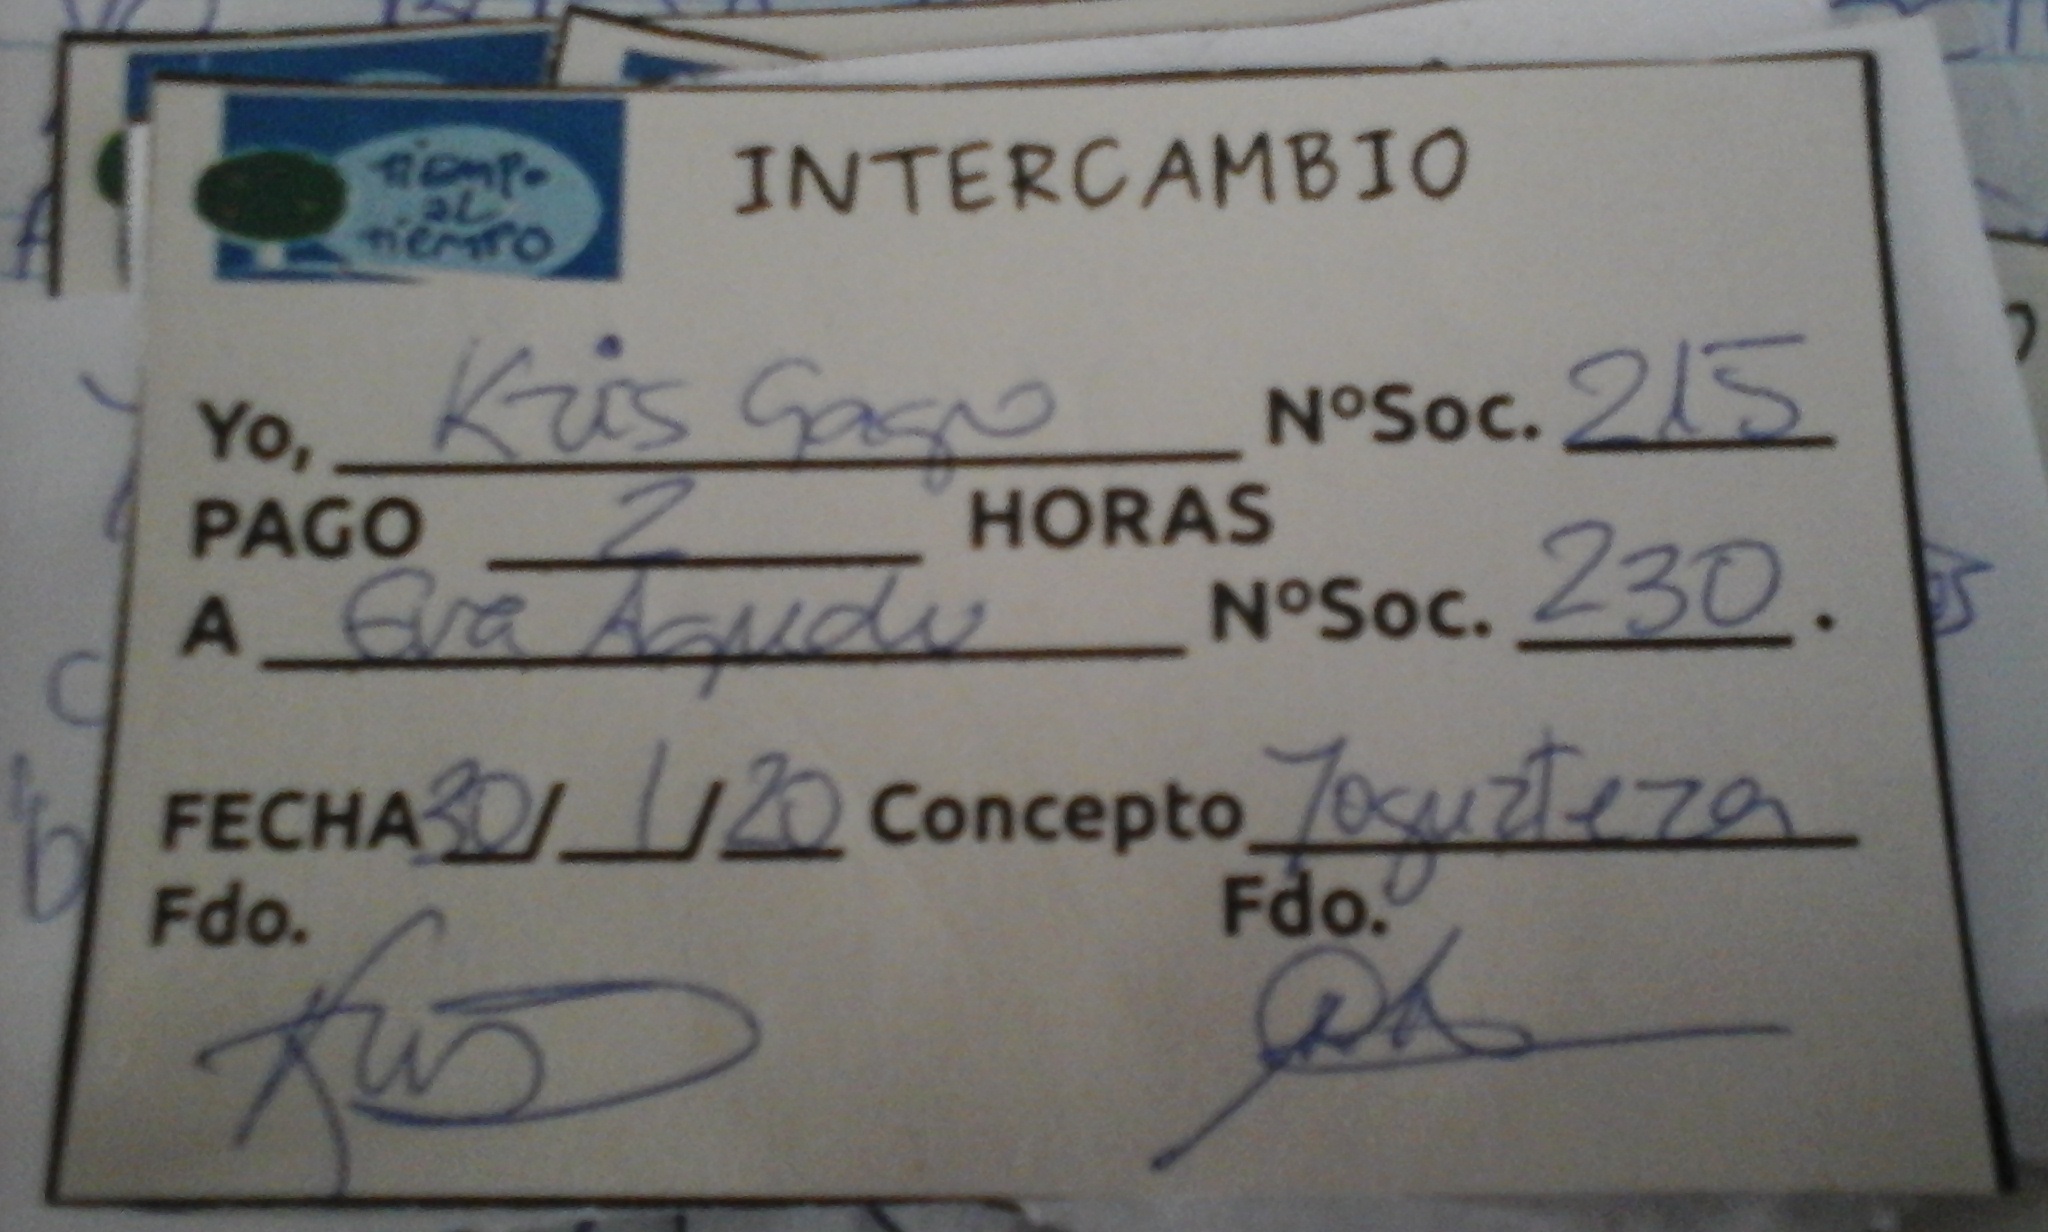 tiempo
al
tiempo
INTERCAMBIO
Yo, Kris Gago NºSoc. 215
PAGO 2 HORAS
A Eva Agudo NºSoc. 230.
FECHA 30/1/20 Concepto Yogurtera
Fdo. Fdo.
Kris